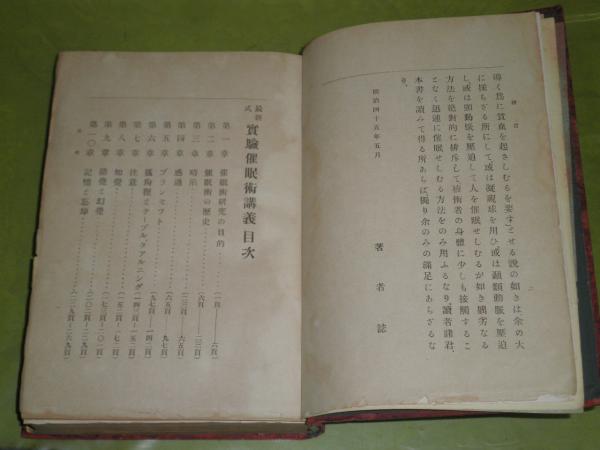 緒言
導く爲に貧血を起さしむるを要すとせる說の如きは余の大
に採らざる所にして或は凝視球を用ひ或は顳顬動脈を壓迫
し或は頸動脈を壓迫して人を催眠せしむるが如き陋劣なる
方法を絕對的に排斥して被術者の身體に少しも接觸するこ
となく迅速に催眠せしむる方法をのみ用ふるなり讀者諸君
本書を讀みて得る所あらば獨り余のみの滿足にあらざるな
り
明治四十五年五月
著者誌
二
最新式 實驗催眠術講義目次
第一章 催眠術硏究の目的………(一頁—六頁)
第二章 催眠術の歷史………(六頁—二三頁)
第三章 暗示………(二三—三三頁)
第四章 感通………(三三—六五頁)
第五章 プランセット………(六五頁—九七頁)
第六章 狐狗狸とテーブル、タアルニング………(九七頁—一四二頁)
第七章 注意………(一四二頁—一五二頁)
第八章 知覺………(一五二頁—一七二頁)
第九章 錯覺と幻覺………(一七二頁—二〇二頁)
第一〇章 記憶と忘却………(二〇二頁—二三九頁)
目次